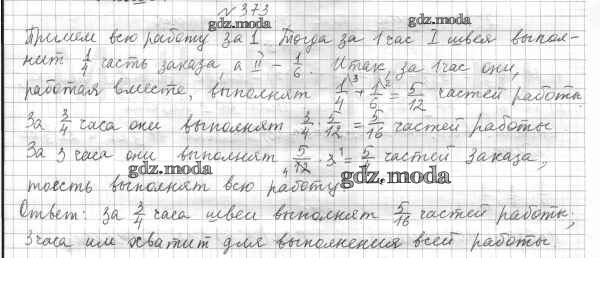 №373
gdz.moda gdz.moda
Примем всю работу за 1. Тогда за 1 час I швея выпол-
нит 1/4 часть заказа, а II - 1/6. Итак, за 1 час они,
работая вместе, выполнят 1/4³ + 1/6² = 5/12 частей работы.
За 3/4 часа они выполнят 3/4 · 5/12 = 5/16 частей работы.
За 3 часа они выполнят 5/12 4 · 3 1 = 5/4 частей заказа,
gdz.moda gdz.moda
тоесть выполнят всю работу
Ответ: за 3/4 часа швеи выполнят 5/16 частей работы;
3 часа им хватит для выполнения всей работы